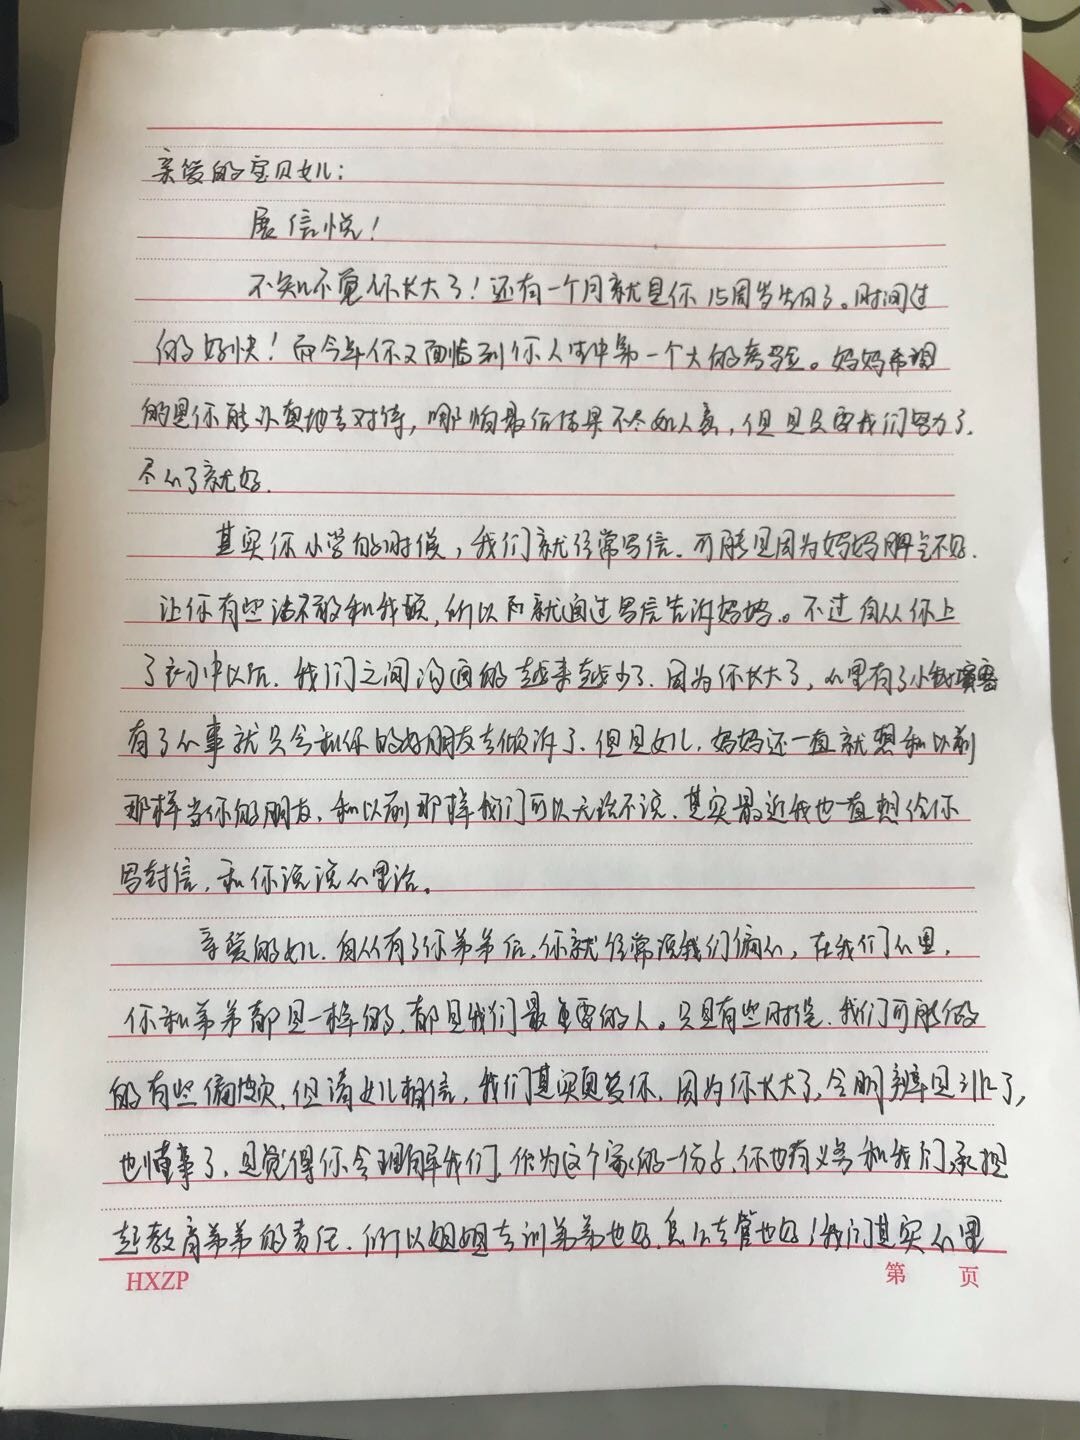 亲爱的宝贝女儿：
展信悦！
不知不觉你长大了！还有一个月就是你15周岁生日了。时间过
的好快！而今年你又面临到你人生中第一个大的考验。妈妈希望
的是你能认真地去对待，哪怕最后结果不尽如人意，但是只要我们努力了，
尽心了就好。
其实你小学的时候，我们就经常写信。可能是因为妈妈脾气不好，
让你有些话不敢和我顶，所以就通过写信告诉妈妈。不过自从你上
了初中以后，我们之间沟通的越来越少了。因为你长大了，心里有了小
有了心事就只会和你的好朋友去倾诉了。但是女儿，妈妈还一直就想和以前
那样当你的朋友，和以前那样我们可以无话不说。其实最近我也一直想给你
写封信，和你说说心里话。
亲爱的女儿，自从有了你弟弟后，你就经常说我们偏心，在我们心里，
你和弟弟都是一样的，都是我们最重要的人。只是有些时候，我们可能做
的有些偏颇，但请女儿相信，我们其实更爱你，因为你长大了，会明辨是非了，
也懂事了，是觉得你会理解我们。作为这个家的一份子，你也有义务和我们承担
起教育弟弟的责任，所以姐姐去训弟弟也好，怎么去管也好，我们其实心里
HXZP
第 页